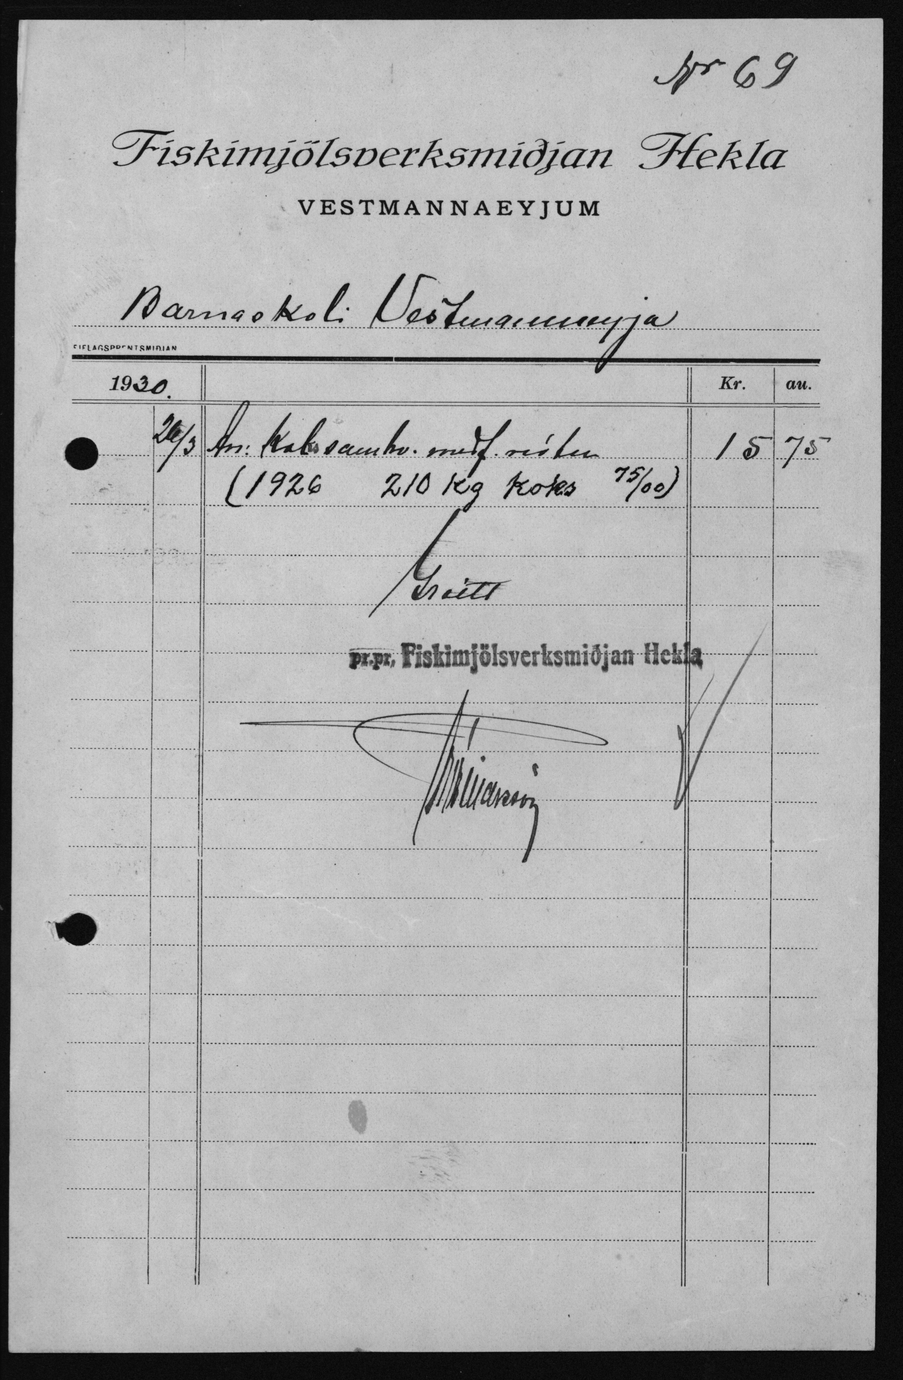 Nr 69
Fiskimjölsverksmiðjan Hekla
VESTMANNAEYJUM
Barnaskoli Vestmannneyja
FJELAGSPRENTSMIÐJAN
1930. Kr. au.
26/3 samkv. medf. nótu 15 75
(1926 210 Kg Koks 75/00)
Greitt
pr.pr. Fiskimjölsverksmiðjan Hekla